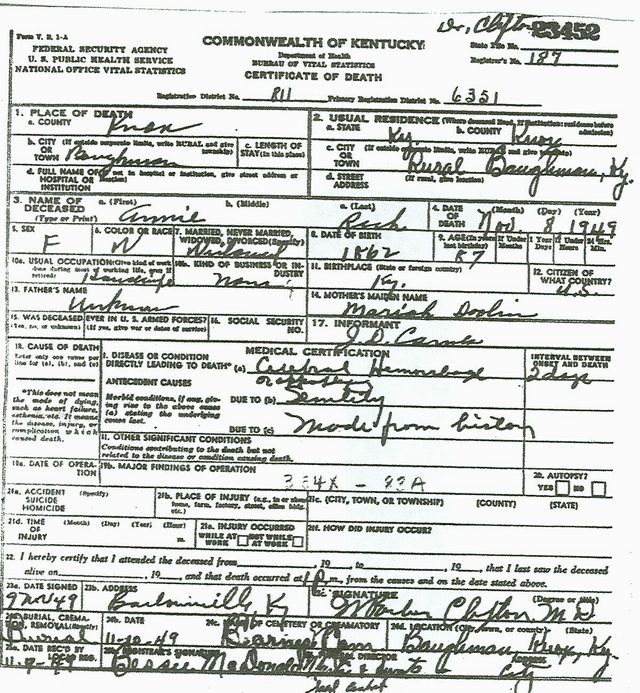 Dr. Clifton 23452
Form V. S. 1-A
COMMONWEALTH OF KENTUCKY
State File No.
FEDERAL SECURITY AGENCY
Department of Health
Registrar's No. 187
U. S. PUBLIC HEALTH SERVICE
BUREAU OF VITAL STATISTICS
NATIONAL OFFICE VITAL STATISTICS
CERTIFICATE OF DEATH
Registration District No. 811 Primary Registration District No. 6351
1. PLACE OF DEATH
a. COUNTY Knox
2. USUAL RESIDENCE (Where deceased lived. If institution: residence before admission)
a. STATE Ky b. COUNTY Knox
b. CITY (If outside corporate limits, write RURAL and give township)
OR
TOWN Baughman
c. LENGTH OF STAY (in this place)
c. CITY (If outside corporate limits, write RURAL and give township)
OR
TOWN Rural Baughman, Ky.
d. FULL NAME OF (If not in hospital or institution, give street address or location)
HOSPITAL OR
INSTITUTION
d. STREET ADDRESS (If rural, give location)
3. NAME OF DECEASED (Type or Print)
a. (First) Annie
b. (Middle)
c. (Last)
4. DATE OF DEATH (Month) (Day) (Year)
Nov. 8 1949
5. SEX
F
6. COLOR OR RACE
W
7. MARRIED, NEVER MARRIED, WIDOWED, DIVORCED (Specify)
Widowed
8. DATE OF BIRTH
1862
9. AGE (In years last birthday) If Under 1 Year Months Days If Under 24 Hrs. Hours Min.
87
10a. USUAL OCCUPATION (Give kind of work done during most of working life, even if retired)
10b. KIND OF BUSINESS OR INDUSTRY
None
11. BIRTHPLACE (State or foreign country)
Ky.
12. CITIZEN OF WHAT COUNTRY?
U.S.
13. FATHER'S NAME
14. MOTHER'S MAIDEN NAME
Mariah
15. WAS DECEASED EVER IN U. S. ARMED FORCES?
(Yes, no, or unknown) (If yes, give war or dates of service)
16. SOCIAL SECURITY NO.
17. INFORMANT
J. D.
18. CAUSE OF DEATH
Enter only one cause per line for (a), (b), and (c)
MEDICAL CERTIFICATION
INTERVAL BETWEEN ONSET AND DEATH
I. DISEASE OR CONDITION
DIRECTLY LEADING TO DEATH* (a) Cerebral Hemorrhage
2 days
or apoplexy
ANTECEDENT CAUSES
*This does not mean the mode of dying, such as heart failure, asthenia, etc. It means the disease, injury, or complication which caused death.
Morbid conditions, if any, giving rise to the above cause (a) stating the underlying cause last.
DUE TO (b) Senility
DUE TO (c) Made from history
II. OTHER SIGNIFICANT CONDITIONS
Conditions contributing to the death but not related to the disease or condition causing death.
19a. DATE OF OPERATION
19b. MAJOR FINDINGS OF OPERATION
334X - 83A
20. AUTOPSY?
YES NO
21a. ACCIDENT (Specify)
SUICIDE
HOMICIDE
21b. PLACE OF INJURY (e.g., in or about home, farm, factory, street, office bldg., etc.)
21c. (CITY, TOWN, OR TOWNSHIP) (COUNTY) (STATE)
21d. TIME OF INJURY (Month) (Day) (Year) (Hour) m.
21e. INJURY OCCURRED
WHILE AT WORK NOT WHILE AT WORK
21f. HOW DID INJURY OCCUR?
22. I hereby certify that I attended the deceased from , 19 to , 19 , that I last saw the deceased
alive on , 19 , and that death occurred at m., from the causes and on the date stated above.
23a. DATE SIGNED
9 Nov 49
23b. ADDRESS
Barbourville, Ky
SIGNATURE (Degree or title)
Clifton M D
24a. BURIAL, CREMATION, REMOVAL (Specify)
Burial
24b. DATE
11-10-49
24c. NAME OF CEMETERY OR CREMATORY
24d. LOCATION (City, town, or county) (State)
Baughman, Knox, Ky.
25a. DATE REC'D BY LOCAL REG.
11-9-49
REGISTRAR'S SIGNATURE
Bessie MacDonald
DIRECTOR ADDRESS
City